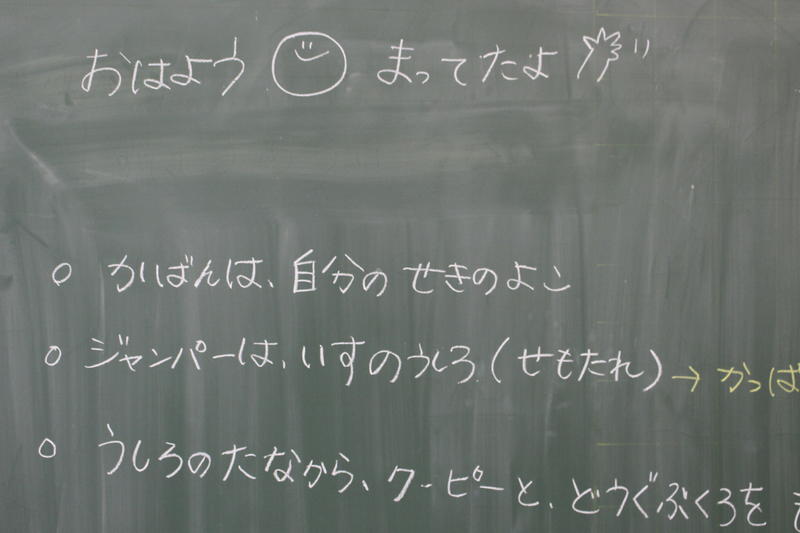 おはよう まってたよ
○ かばんは、自分のせきのよこ
○ ジャンパーは、いすのうしろ(せもたれ) → かっぱ
○ うしろのたなから、クーピーと、どうぐぶくろを